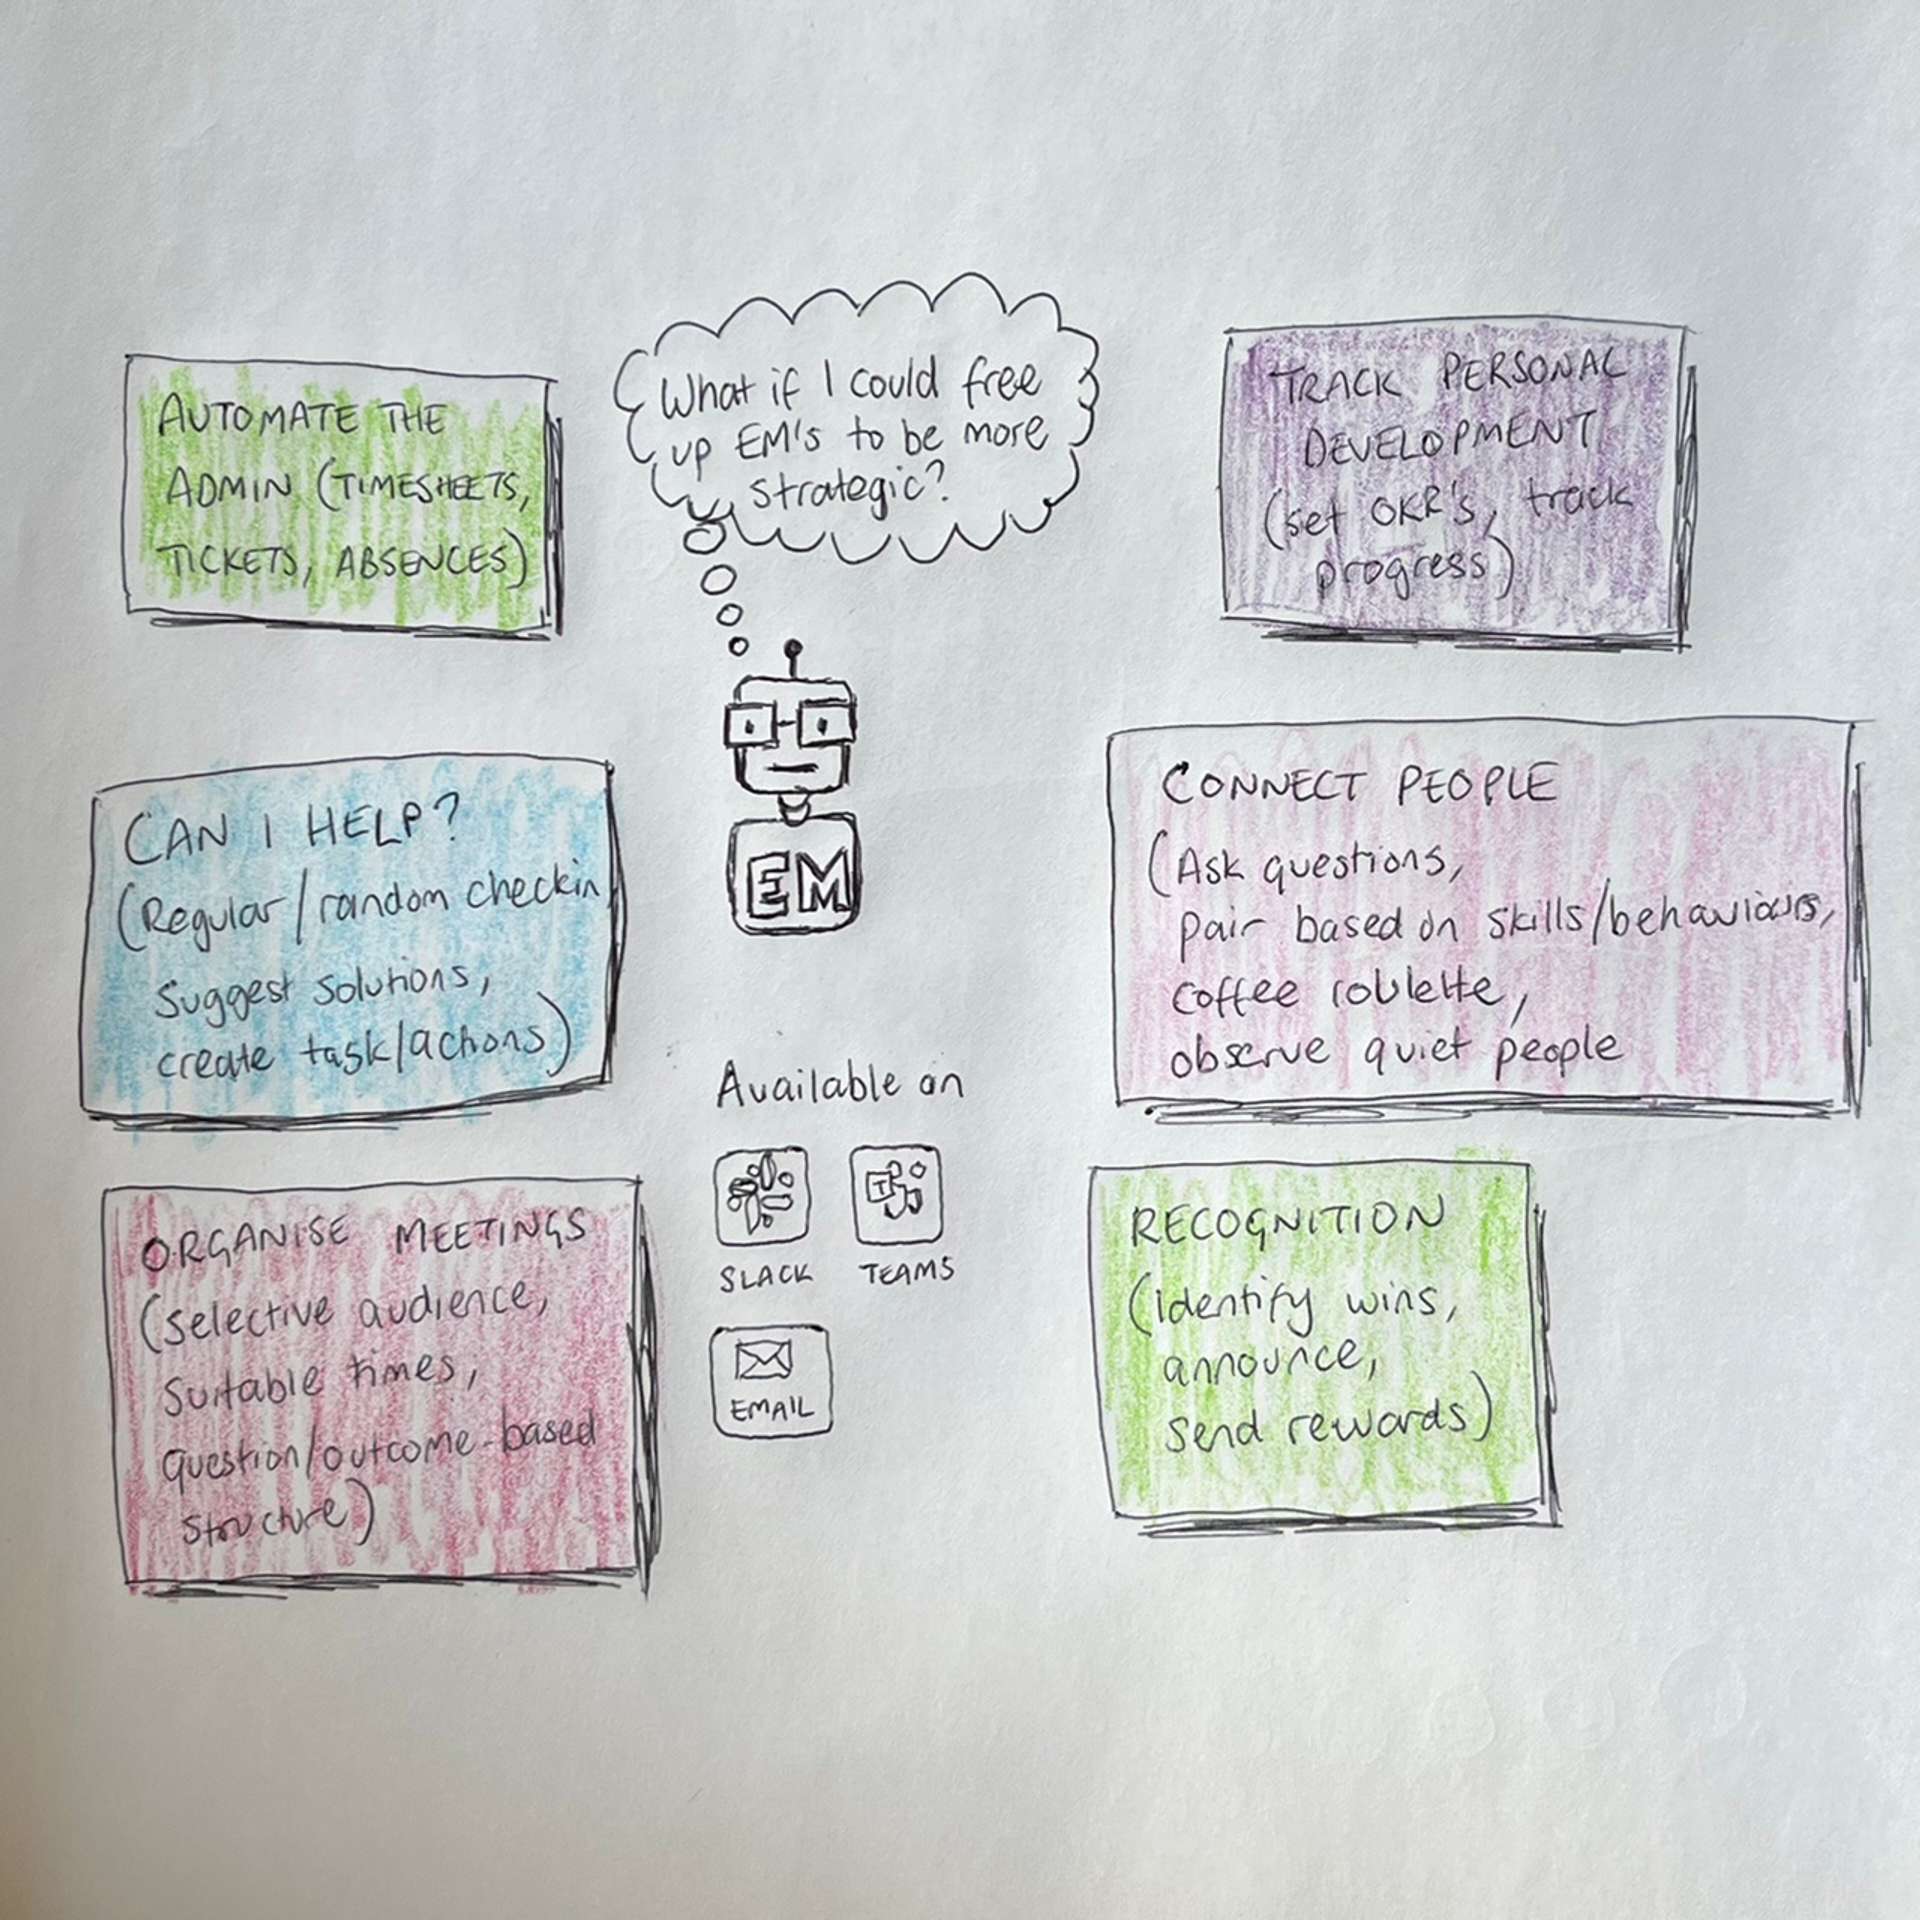 AUTOMATE THE
ADMIN (TIMESHEETS,
TICKETS, ABSENCES)
What if I could free
up EM's to be more
strategic?
TRACK PERSONAL
DEVELOPMENT
(set OKR's, track
progress)
CAN I HELP?
(Regular/random checkin,
suggest solutions,
create task/actions)
EM
CONNECT PEOPLE
(Ask questions,
pair based on skills/behaviours,
coffee roulette,
observe quiet people
ORGANISE MEETINGS
(selective audience,
suitable times,
question/outcome-based
structure)
Available on
T
SLACK
TEAMS
EMAIL
RECOGNITION
(identify wins,
announce,
send rewards)